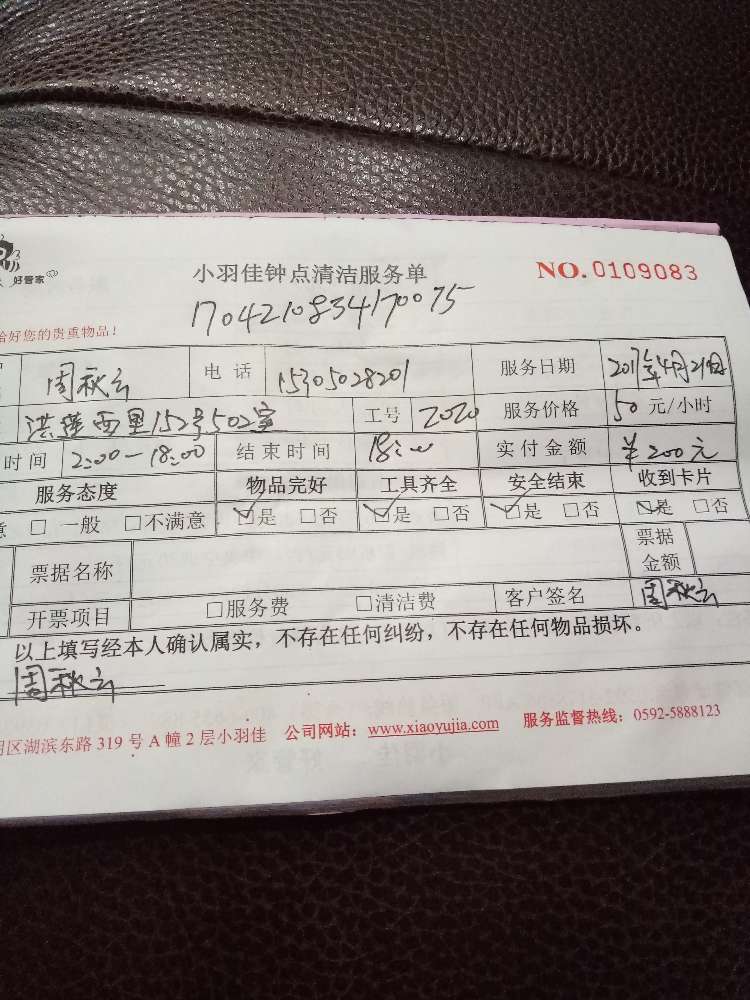 好管家
小羽佳钟点清洁服务单
NO.0109083
1704210834170075
恰好您的贵重物品！
周秋云 电话 15305028201 服务日期 2017年4月21日
洪莲西里152号502室 工号 2020 服务价格 50 元/小时
时间 2:00—18:00 结束时间 18:00 实付金额 ¥200元
服务态度 物品完好 工具齐全 安全结束 收到卡片
意 □ 一般 □不满意 ☑是 □否 ☑是 □否 ☑是 □否 ☑是 □否
票据名称 票据金额
开票项目 □服务费 □清洁费 客户签名 周秋云
以上填写经本人确认属实，不存在任何纠纷，不存在任何物品损坏。
周秋云
明区湖滨东路 319 号 A 幢 2 层小羽佳 公司网站：www.xiaoyujia.com 服务监督热线：0592-5888123